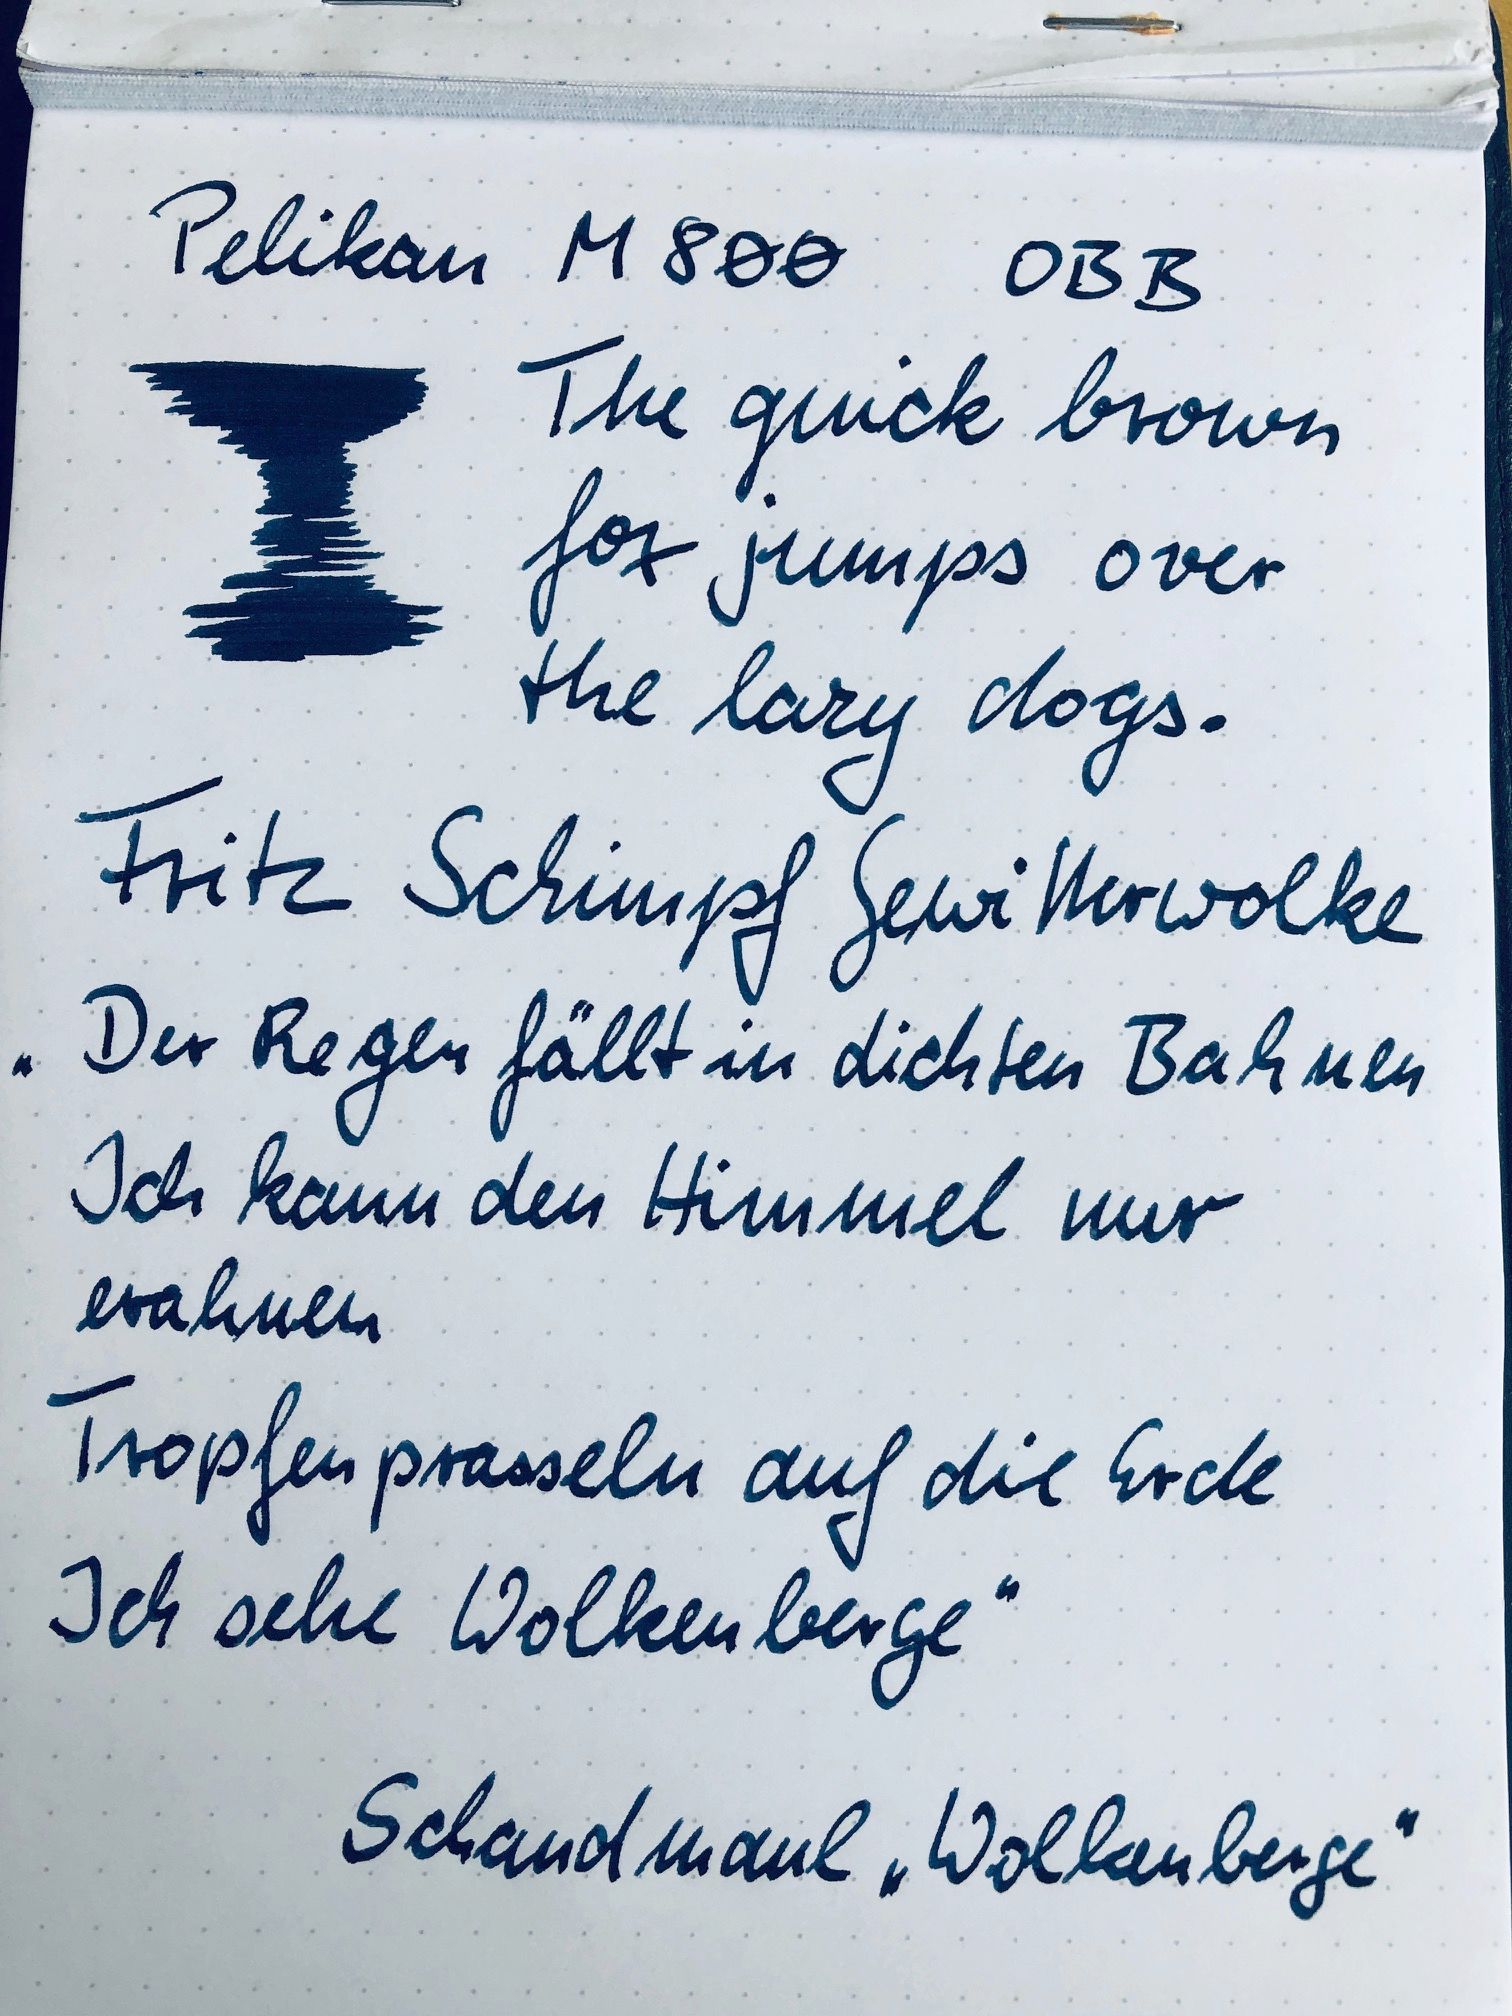 Pelikan M800 OBB
The quick brown
fox jumps over
the lazy dogs.
Fritz Schimpf Gewitterwolke
„Der Regen fällt in dichten Bahnen
Ich kann den Himmel nur
erahnen
Tropfen prasseln auf die Erde
Ich sehe Wolkenberge“
Schandmaul „Wolkenberge“